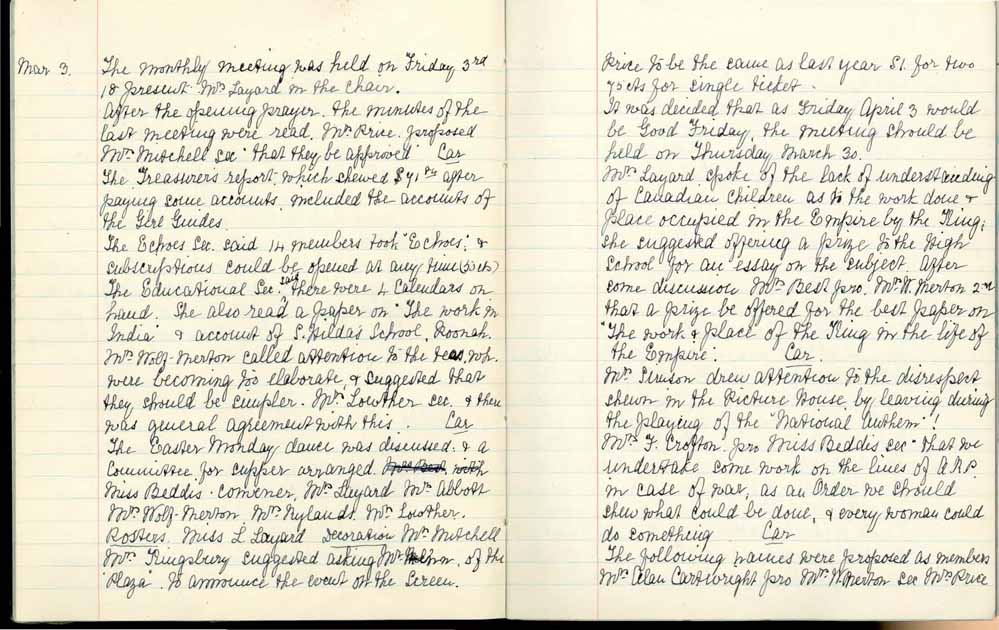 Mar 3. The monthly meeting was held on Friday 3rd
18 present. Mrs Layard in the chair.
After the opening prayer. the minutes of the
last meeting were read, Mrs Price. proposed
Mrs Mitchell sec "that they be approved" Car
The Treasurer's report, which shewed $71 after
paying some accounts, included the accounts of
the Girl Guides.
The Echoes Sec. said 14 members took "Echoes"; &
subscriptions could be opened at any time (50 cts)
The Educational Sec. said there were 4 Calendars on
hand. She also read a paper on "The work in
India" & account of S. Hilda's School, Poonah.
Mrs Wolf-Merton called attention to the teas, wh.
were becoming too elaborate, & suggested that
they should be simpler. Mrs Lowther sec. & there
was general agreement with this. Car
The Easter Monday dance was discussed. & a
Committee for supper arranged. Mrs Best, with
Miss Beddis. convener, Mrs Layard Mrs Abbott
Mrs Wolf-Merton Mrs Rylands. Mrs Lowther.
Posters. Miss L Layard Decoration Mrs Mitchell
Mrs Kingsbury suggested asking Mr of the
Plaza. to announce the event on the screen.
Price to be the same as last year $1. for two
75 cts for single ticket.
It was decided that as Friday April 3 would
be Good Friday, the meeting should be
held on Thursday March 30.
Mrs Layard spoke of the lack of understanding
of Canadian Children as to the work done &
place occupied in the Empire by the King;
she suggested offering a prize to the High
School for an essay on the subject. After
some discussion Mrs Best pro. Mrs W. Merton 2nd
that a prize be offered for the best paper on
"The work & place of the King in the life of
the Empire". Car.
Mrs Simson drew attention to the disrespect
shewn in the Picture House, by leaving during
the playing of the "National Anthem"!
Mrs F. Crofton. pro Miss Beddis sec "that we
undertake some work on the lines of A.R.P.
in case of war, as an Order we should
shew what could be done, & every woman could
do something Car
The following names were proposed as members
Mrs Alan Cartwright pro Mrs W. Merton sec Mrs Price